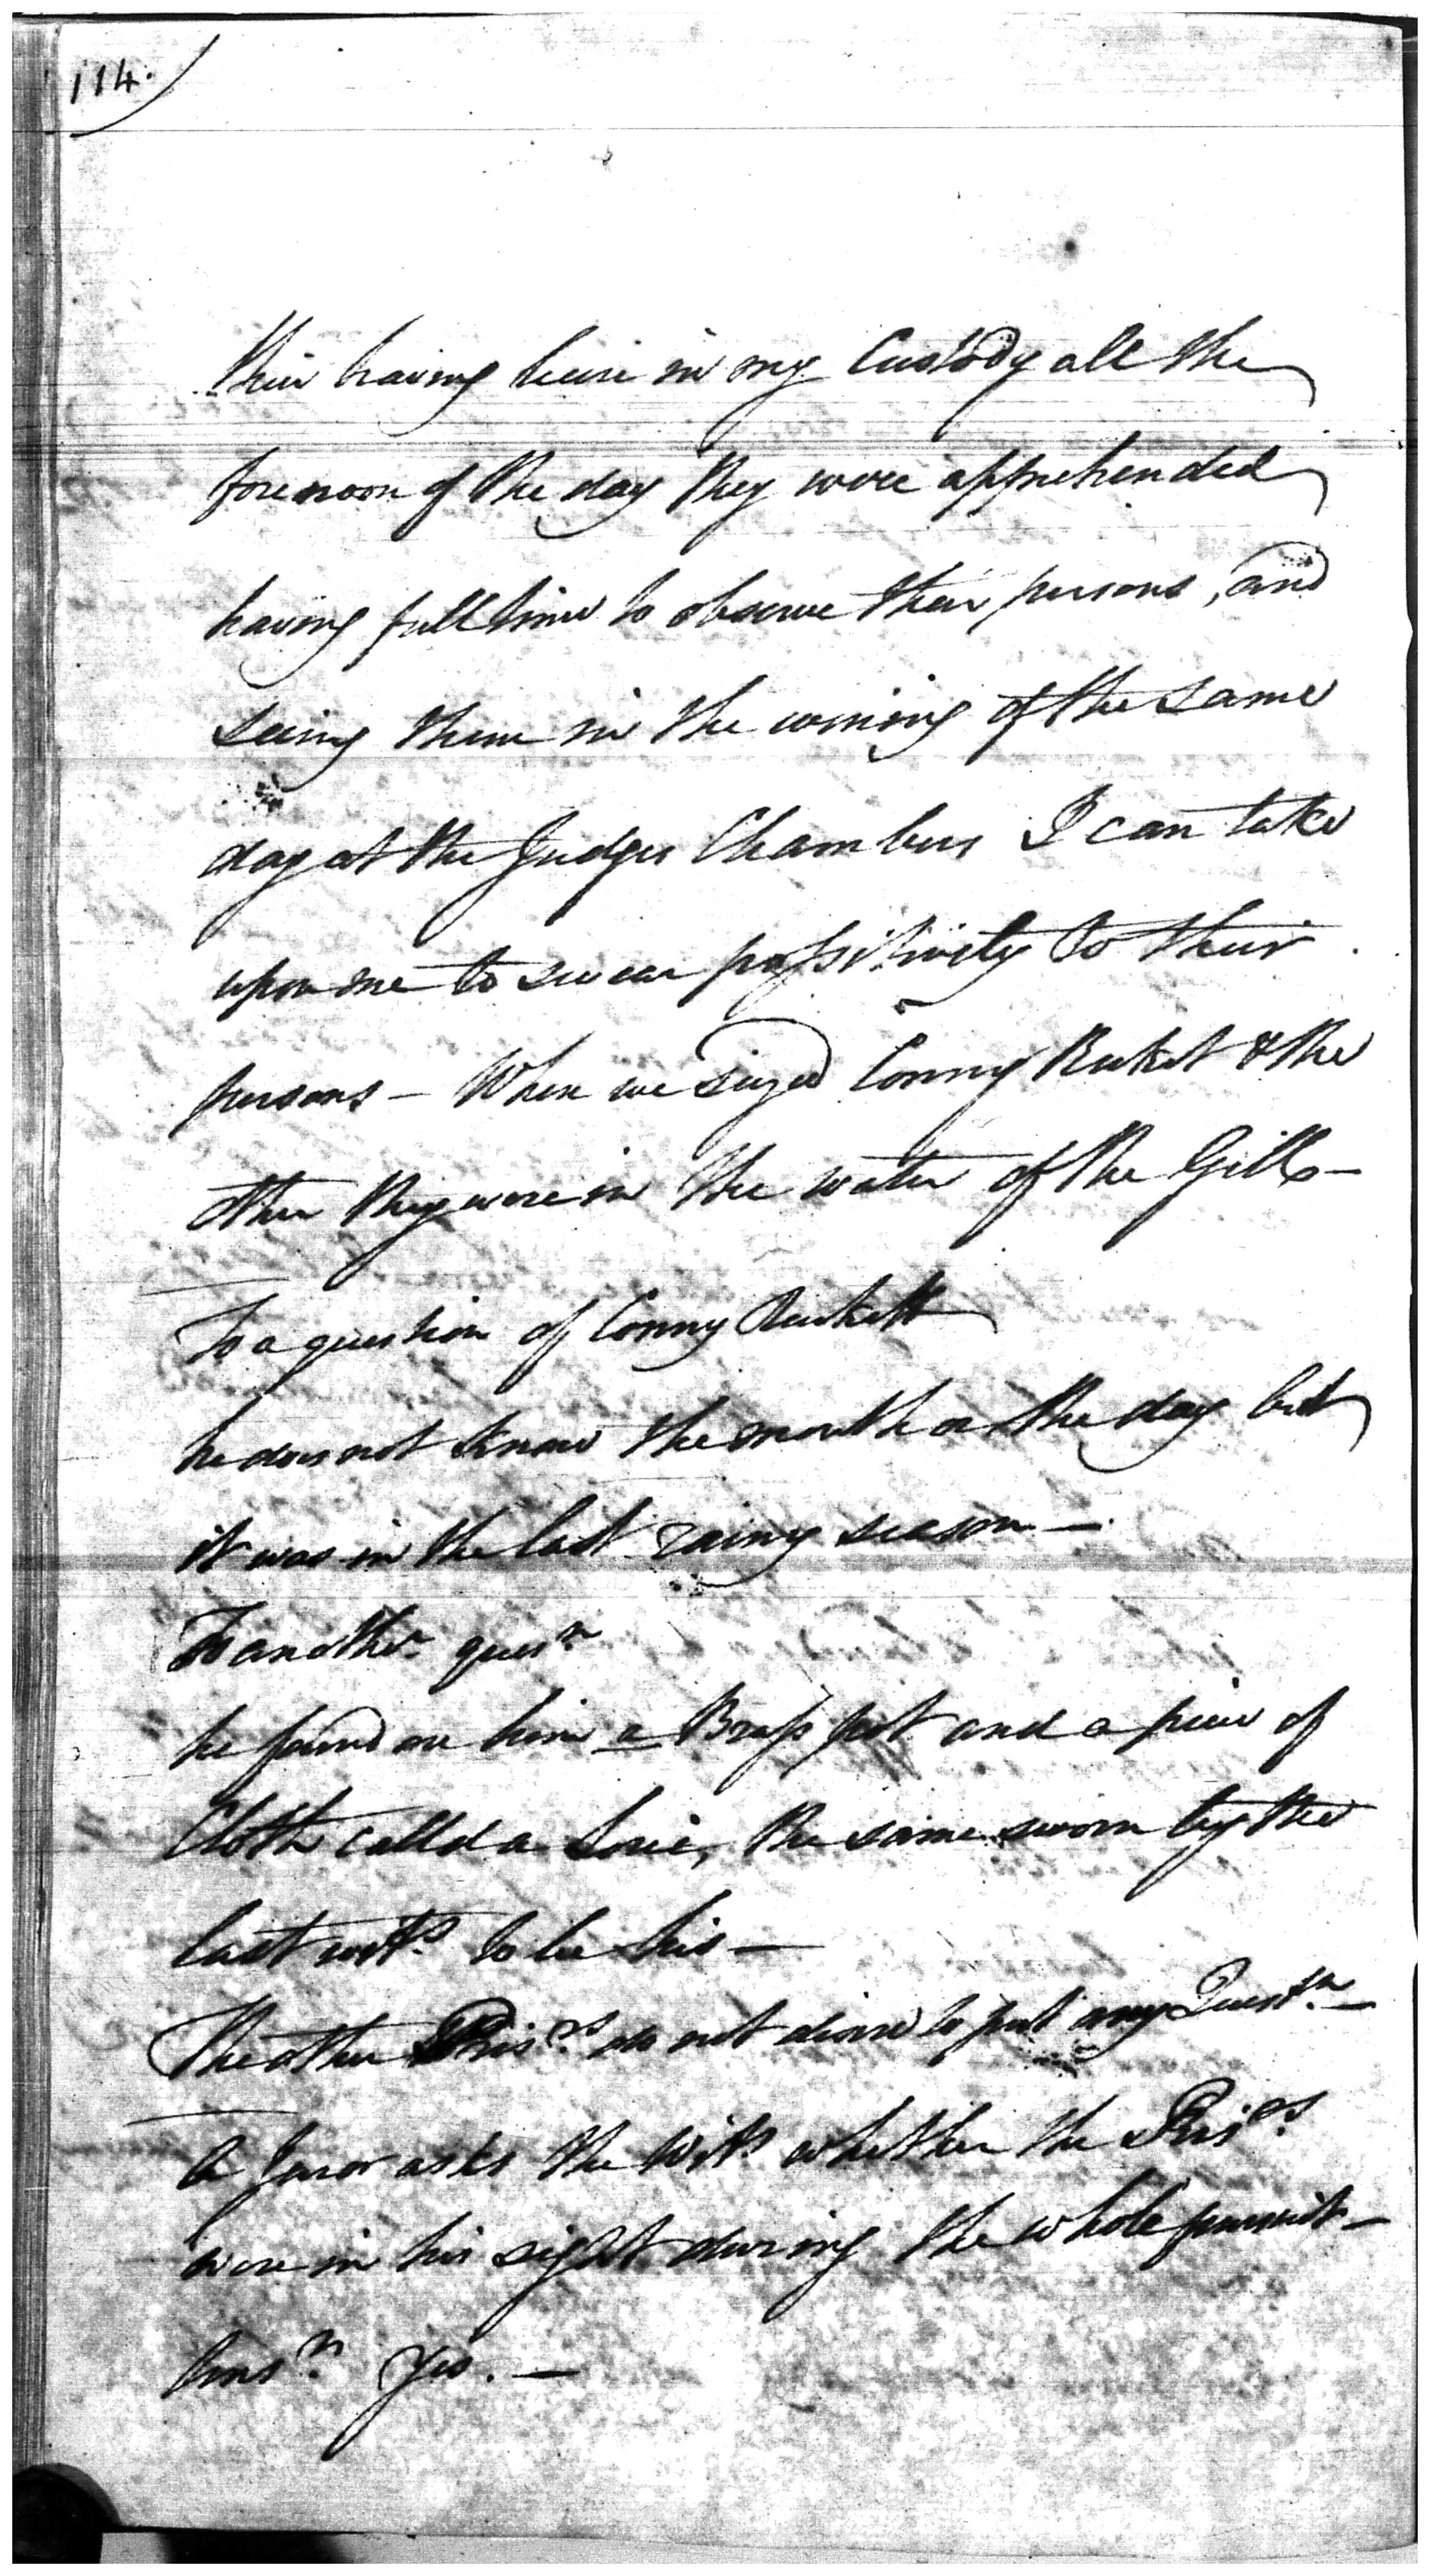 114.
their having been in my Custody all the
forenoon of the day they were apprehended
having full time to observe their persons, and
seeing them in the evening of the same
day at the Judges Chambers I can take
upon me to swear possitively to their
persons - When we seized Conny & the
other they were in the water of the Gills -
To a question of Conny
he does not know the month or the day but
it was in the last rainy season -
To another quesn
he found on him a Brass pot and a piece of
Cloth calld a the same sworn by the
last wits to be his -
The other Prisrs do not desire to put any Questn -
A Juror asks the Wits whether the Prisrs
were in his sight during the whole pursuit -
Ansr. Yes. -